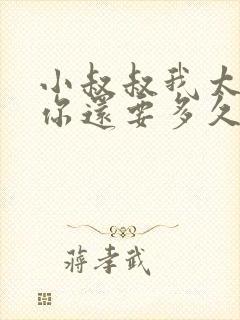 小叔叔我太
你還要多久
蔣孝武